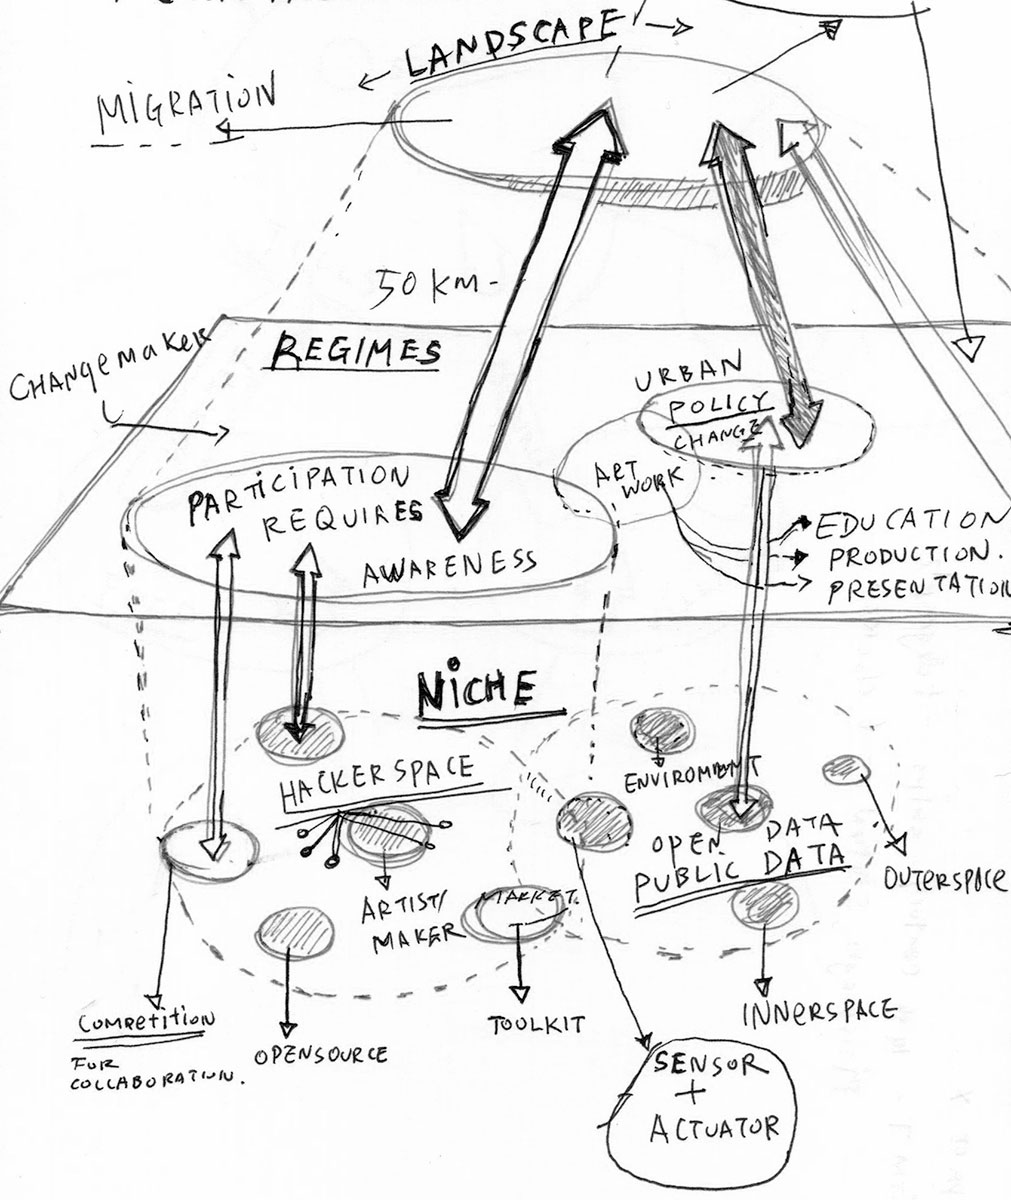 LANDSCAPE
MIGRATION
50 KM-
REGIMES
CHANGEMAKER
URBAN
POLICY
CHANGE
ART
WORK
PARTICIPATION
REQUIRES
AWARENESS
EDUCATION
PRODUCTION.
PRESENTATION
NiCHE
HACKERSPACE
ENVIROMENT
OPEN DATA
PUBLIC DATA
OUTERSPACE
ARTIST/
MAKER
MARKET.
INNERSPACE
COMPETITION
FOR
COLLABORATION.
OPENSOURCE
TOOLKIT
SENSOR
+
ACTUATOR